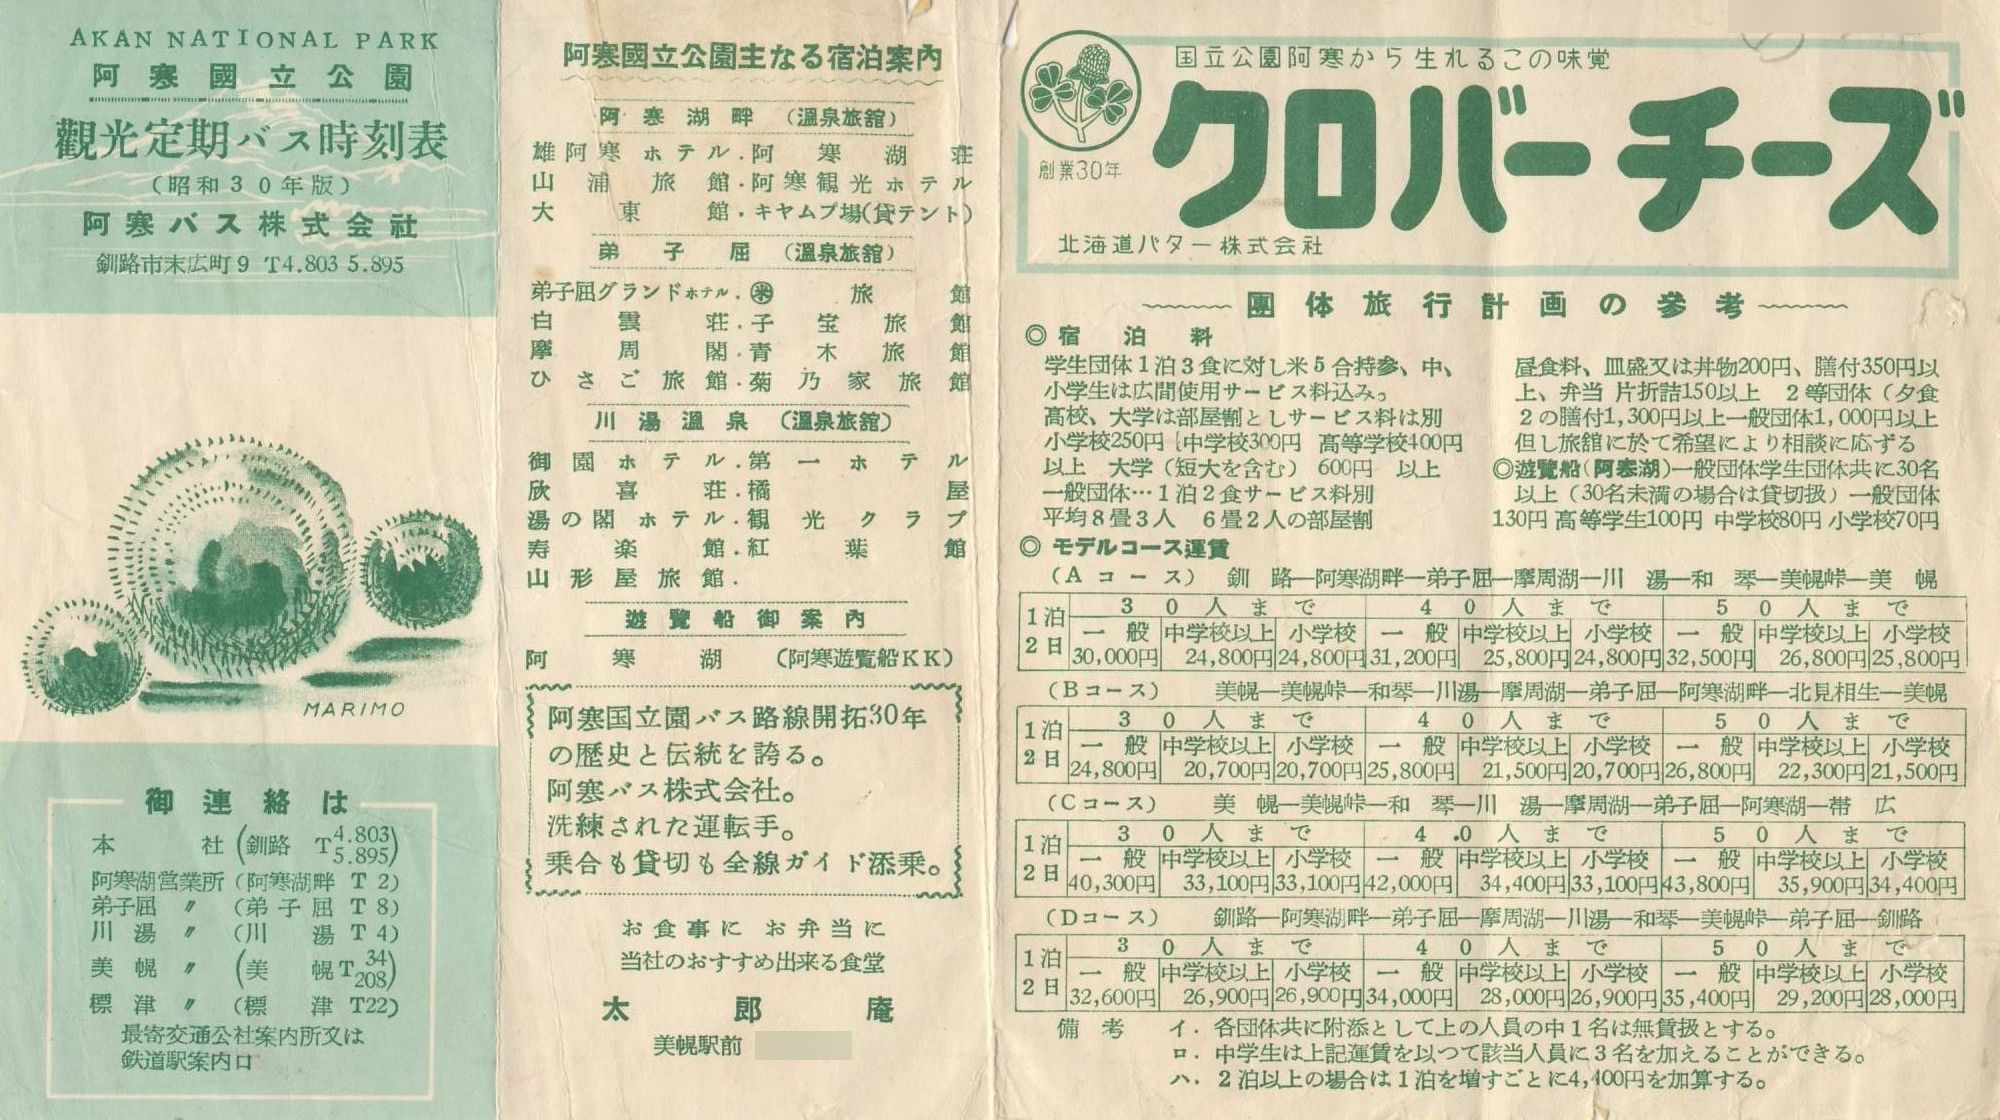 AKAN NATIONAL PARK
阿寒國立公園
觀光定期バス時刻表
(昭和30年版)
阿寒バス株式会社
釧路市末広町9 T4.803 5.895
MARIMO
御連絡は
本社(釧路 T4.803 5.895)
阿寒湖営業所(阿寒湖畔 T2)
弟子屈 〃 (弟子屈 T8)
川湯 〃 (川湯 T4)
美幌 〃 (美幌T34 208)
標津 〃 (標津 T22)
最寄交通公社案内所又は
鉄道駅案内口
阿寒國立公園主なる宿泊案内
阿寒湖畔 (溫泉旅舘)
雄阿寒ホテル.阿寒湖荘
山浦旅館.阿寒観光ホテル
大東館.キヤムプ場(貸テント)
弟子屈 (溫泉旅舘)
弟子屈グランドホテル.㊍旅館
白雲荘.子宝旅館
摩周閣.青木旅館
ひさご旅館.菊乃家旅館
川湯溫泉 (溫泉旅舘)
御園ホテル.第一ホテル
欣喜荘.橘屋
湯の閣ホテル.観光クラブ
寿楽館.紅葉館
山形屋旅館.
遊覽船御案内
阿寒湖 (阿寒遊覧船KK)
阿寒国立園バス路線開拓30年
の歴史と伝統を誇る。
阿寒バス株式会社。
洗練された運転手。
乗合も貸切も全線ガイド添乗。
お食事に お弁当に
当社のおすすめ出来る食堂
太郎庵
美幌駅前
国立公園阿寒から生れるこの味覚
クロバーチーズ
創業30年
北海道バター株式会社
團体旅行計画の參考
◎宿泊料
学生団体1泊3食に対し米5合持参、中、
小学生は広間使用サービス料込み。
高校、大学は部屋割としサービス料は別
小学校250円 中学校300円 高等学校400円
以上 大学(短大を含む) 600円 以上
一般団体…1泊2食サービス料別
平均8畳3人 6畳2人の部屋割
昼食料、皿盛又は丼物200円、膳付350円以
上、弁当 片折詰150以上 2等団体(夕食
2の膳付1,300円以上一般団体1,000円以上
但し旅舘に於て希望により相談に応ずる
◎遊覽船(阿寒湖)一般団体学生団体共に30名
以上(30名未満の場合は貸切扱)一般団体
130円 高等学生100円 中学校80円 小学校70円
◎モデルコース運賃
(Aコース) 釧路―阿寒湖畔―弟子屈―摩周湖―川湯―和琴―美幌峠―美幌
1泊2日 30人まで 40人まで 50人まで
一般 中学校以上 小学校 一般 中学校以上 小学校 一般 中学校以上 小学校
30,000円 24,800円 24,800円 31,200円 25,800円 24,800円 32,500円 26,800円 25,800円
(Bコース) 美幌―美幌峠―和琴―川湯―摩周湖―弟子屈―阿寒湖畔―北見相生―美幌
1泊2日 30人まで 40人まで 50人まで
一般 中学校以上 小学校 一般 中学校以上 小学校 一般 中学校以上 小学校
24,800円 20,700円 20,700円 25,800円 21,500円 20,700円 26,800円 22,300円 21,500円
(Cコース) 美幌―美幌峠―和琴―川湯―摩周湖―弟子屈―阿寒湖―帯広
1泊2日 30人まで 40人まで 50人まで
一般 中学校以上 小学校 一般 中学校以上 小学校 一般 中学校以上 小学校
40,300円 33,100円 33,100円 42,000円 34,400円 33,100円 43,800円 35,900円 34,400円
(Dコース) 釧路―阿寒湖畔―弟子屈―摩周湖―川湯―和琴―美幌峠―弟子屈―釧路
1泊2日 30人まで 40人まで 50人まで
一般 中学校以上 小学校 一般 中学校以上 小学校 一般 中学校以上 小学校
32,600円 26,900円 26,900円 34,000円 28,000円 26,900円 35,400円 29,200円 28,000円
備考 イ.各団体共に附添として上の人員の中1名は無賃扱とする。
ロ.中学生は上記運賃を以つて該当人員に3名を加えることができる。
ハ.2泊以上の場合は1泊を増すごとに4,400円を加算する。